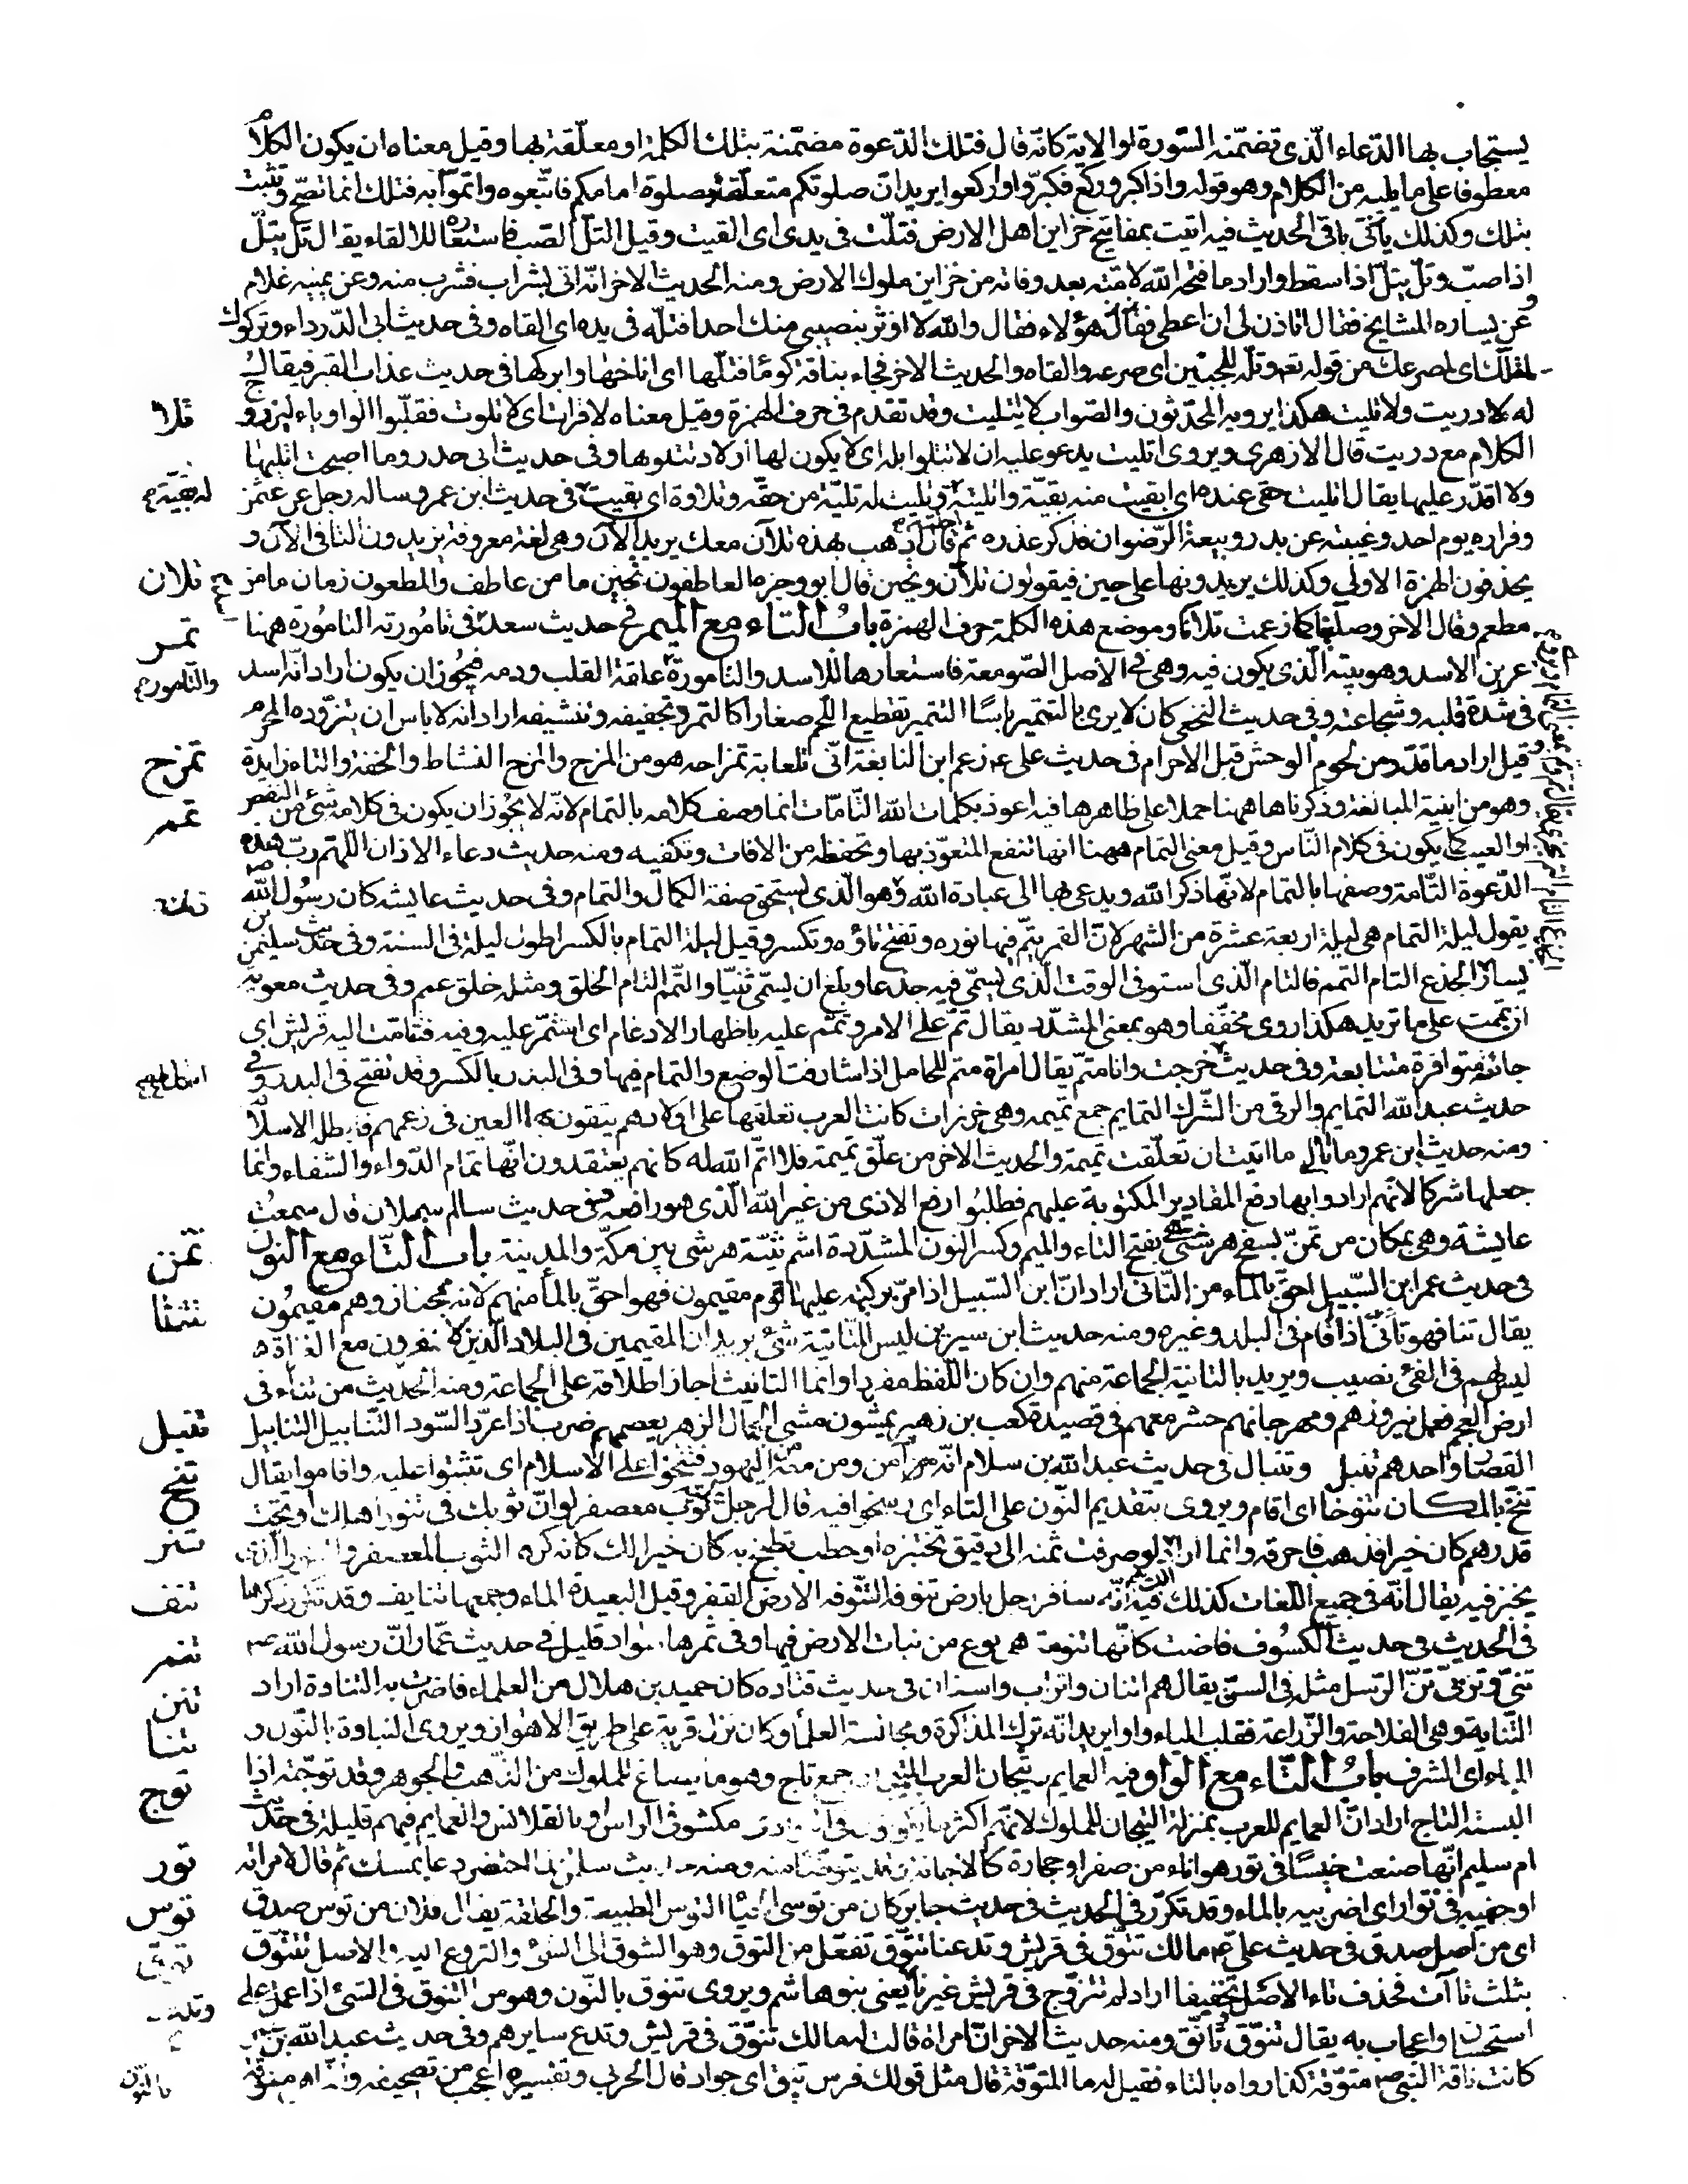 يستجاب بها الدّعاء الّذى تضمّنه السّورة او الاية كانّه قال فتلك الدّعوة مضمّنة بتلك الكلمة او معلّقة بها وقيل معناه ان يكون الكلام
معطوفا على ما يليه من الكلام وهو قوله واذا كبر وركع فكبّروا واركعوا يريد انّ صلوتكم متعلقة بصلوة امامكم فاتّبعوه واتموا به فتلك انما تصحّ وتثبت
بتلك وكذلك ياتى باقى الحديث فيه اتيت بمفاتيح خزاين اهل الارض فتلّت فى يدى اى القيت وقيل التلّ الصّب فاستعاره للالقاء يقال تلّ يتلّ
اذا صبّ وتلّ يتلّ اذا سقط واراد ما فتحه الله لامّته بعد وفاته من خزاين ملوك الارض ومنه الحديث الاخر انّه اتى بشراب فشرب منه وعن يمينه غلام
وعن يساره المشايخ فقال اتاذن لى ان اعطى هؤلاء فقال والله لا اوثر بنصيبى منك احدا فتلّه فى يده اى القاه وفى حديث ابى الدّرداء وتركوك
لمتلّك اى لمصرعك من قوله تعالى وتلّه للجبين اى صرعه والقاه والحديث الاخر فجاء بناقة كوماء فتلّها اى اناخها وابركها فى حديث عذاب القبر فيقال
له لا دريت ولا تليت هكذا يرويه المحدّثون والصّواب لا ايتليت وقد تقدم فى حرف الهمزة وقيل معناه لا قرات اى لا تلوت فقلّبوا الواو ياء ليزدوج
الكلام مع دريت قال الازهرى ويروى اتليت يدعو عليه ان لا تتلوا ابله اى لا يكون لها اولاد تتلوها وفى حديث ابى حدرد ما اصبحت اتليها
ولا اقدّر عليها يقال اتليت حقى عنده اى ابقيت منه بقيّة واتليته وتليت له تليّة من حقّه وتلاوة اى بقيت فى حديث ابن عمر وساله رجل عن عثمن
وفراره يوم احد وغيبته عن بدر وبيعة الرّضوان فذكر عذره ثم قال اذهب بهذه تلآن معك يريد الآن وهى لغة معروفة يزيدون التا فى الآن و
يحذفون الهمزة الاولى وكذلك يزيدونها على حين فيقولون تلآن وتحين قال ابو وجزه العاطفون تحين ما من عاطف والمطعمون زمان ما من
مطعم وقال الاخر وصلينا كما زعمت تلانا وموضع هذه الكلمة حرف الهمزة باب التاء مع الميم فى حديث سعد فى تامورته التامورة ههنا
عرين الاسد وهو بيته الّذى يكون فيه وهى فى الاصل الصّومعة فاستعارها للاسد والتامورة علقة القلب ودمه فيجوز ان يكون اراد انّه اسد
فى شدة قلبه وشجاعته وفى حديث النخعى كان لا يرى بالتتمير باسًا التتمير تقطيع اللّحم صغارا كالتمر وتجفيفه وتنشيفه اراد انه لا باس ان يتزوّده المحرم
وقيل اراد ما قدّد من لحوم الوحش قبل الاحرام فى حديث على زعم ابن النابغة انّى تلعابة تمزاحه هو من المزح والمزح النشاط والخفة والتاء زايدة
وهو من ابنية المبالغة وذكرناها ههنا حملا على ظاهرها فيه اعوذ بكلمات الله التّامّات انما وصف كلامه بالتمام لانّه لا يجوز ان يكون فى كلامه شئ من النقص
او العيب كما يكون فى كلام النّاس وقيل معنى التمام ههنا انها تنفع المتعوّذ بها وتحفظه من الافات وتكفيه ومنه حديث دعاء الاذان اللهم ربّ هذه
الدّعوة التّامة وصفها بالتمام لانّها ذكر الله ويدعى بها الى عبادة الله وهو الّذى يستحق صفة الكمال والتمام وفى حديث عايشه كان رسول الله
يقول ليلة التمام هى ليلة اربعة عشرة من الشهر لانّ القمر يتمّ فيها نوره وتفتح تاؤه وتكسر وقيل ليلة التمام بالكسر اطول ليلة فى السنة وفى حديث سليمن بن
يسار الجذع التام التمم فالتام الّذى استوفى الوقت الّذى يسمّى فيه جذعا وبلغ ان يسمّى ثنيّا والتّمم التام الخلق ومثله خلق عمم وفى حديث معويه
ان تممت على ما تريد هكذا روى مخفّفا وهو بمعنى المشدّد يقال تمّ على الامر وتمم عليه باظهار الادغام اى استمّر عليه وفيه فتتامّت اليه قريش اى
جائته متوافرة متتابعة وفى حديث خرجت وانا متمّ يقال امراة متم للحامل اذا شارفت الوضع والتمام فيها وفى البدر بالكسر وقد تفتح فى البدر وفى
حديث عبد الله التمايم والرقى من الشّرك التمايم جمع تميمه وهى خرزات كانت العرب تعلقها على اولادهم يتقون بها العين فى زعمهم فابطله الاسلام
ومنه حديث ابن عمر وما ابالى ما اتيت ان تعلّقت تميمة والحديث الاخر من علّق تميمة فلا اتمّ الله له كانهم يعتقدون انّها تمام الدّواء والشفاء وانما
جعلها شركا لانّهم ارادوا بها دفع المقادير المكتوبة عليهم فطلبوا دفع الاذى من غير الله الّذى هو دافعه فى حديث سالم سبلان قال سمعت
عايشة وهى بمكان من تمنّ بسفح هرشى بفتح التاء والميم وكسر النون المشدّدة اسم ثنيّة هرشى بين مكّة والمدينة باب التّاء مع النون
فى حديث عمر ابن السّبيل احقّ بالماء من التّانى اراد انّ ابن السّبيل اذا مرّ بركيّه عليها قوم مقيمون فهو احقّ بالماء منهم لانه مجتاز وهم مقيمون
يقال تنا فهو تانئ اذا اقام فى البلد وغيره ومنه حديث ابن سيرين ليس للتّانية شئ يريد انّ المقيمين فى البلاد الّذين لا ينفرون مع الغزاة
ليس لهم فى الفئ نصيب ويريد بالتانية الجماعة منهم وان كان اللّفظ مفردا وانما التانيث اجاز اطلاقه على الجماعة ومنه الحديث من تناء فى
ارض العجم فعمل نيروزهم ومهرجانهم حشر معهم فى قصيدة كعب بن زهير يمشون مشى الجمال الزهر يعصمهم ضرب اذا عرّد السّود التّنابيل التنابيل
القصار واحدهم تنبل وتنبال فى حديث عبد الله بن سلام انّه آمن ومن معه من اليهود فتنخوا على الاسلام اى تثبتوا عليه واقاموا يقال
تنخ بالمكان تنوخا اى اقام ويروى بتقديم النّون على التاء اى رسخوا فيه قال لرجل عليه ثوب معصفر لو انّ ثوبك فى تنور اهلك او تحت
قدرهم كان خيرا فذهب فاحرقه وانما اراد لو صرفت ثمنه الى دقيق تختبزه او حطب تطبخ به كان خيرا لك كانه كره الثوب المعصفر والتنور الّذى
يخبز فيه يقال انّه فى جميع اللّغات كذلك فيه انّه سافر رجل بارض تنوفة التّنوفه الارض القفر وقيل البعيدة الماء وجمعها تنايف وقد تكرر ذكرها
فى الحديث فى حديث الكسوف فاضت كانّها تنومة هى نوع من نبات الارض فيها وفى ثمرها سواد قليل فى حديث عمّار انّ رسول الله
تنّى وتربى تنّ الرّجل مثله فى السنّ يقال هم اتنان واتراب واسنان فى حديث قتاده كان حميد بن هلال من العلماء فاضرت به التناوة اراد
التّناية وهى الفلاحة والزّراعة فقلب الياء واوا يريد انّه ترك المذاكرة ومجالسة العلماء وكان نزل قرية على طريق الاهواز ويروى النباوة بالنّون و
الباء اى الشرف باب التّاء مع الواو فيه العمايم تيجان العرب التيجان جمع تاج وهو ما يصاغ للملوك من الذّهب والجوهر وقد توجّته اذا
البسته التاج اراد انّ العمايم للعرب بمنزلة التيجان للملوك لانّهم اكثر ما يكونون فى البوادى مكشوفى الراس او بالقلانس والعمايم فيهم قليلة فى حديث
ام سليم انّها صنعت حيسًا فى تور هو اناء من صفر او حجارة كالاجانة وقد يتوضّأ منه ومنه حديث سلمان لما احتضر دعا بمسك ثم قال لامراته
اوخفيه فى تور اى اضربيه بالماء وقد تكرّر فى الحديث فى حديث جابر كان من توسى الحيا التوس الطبيعة والخلقة يقال فلان من توس صدق
اى من اصل صدق فى حديث علىّ ما لك تتوّق فى قريش وتدعنا تتوّق تفعّل من التوق وهو الشوق الى الشئ والنزوع اليه والاصل تتتوّق
بثلث تاآت فحذف تاء الاصل تخفيفا اراد لم تتزوّج فى قريش غيرنا يعنى بنو هاشم ويروى تنوق بالنّون وهو من التنوق فى الشئ اذا عمل على
استحسان واعجاب به يقال تنوّق وتانّق ومنه حديث الاخر انّ امراة قالت له ما لك تتوّق فى قريش وتدع سايرهم وفى حديث عبد الله بن
كانت ناقة النبى متوّقة كذا رواه بالتاء فقيل له ما المتوّقة قال مثل قولك فرس تيق اى جواد قال الحربى وتفسيره اعجب من تصحيفه وانما هى منوقه
تلا
تلان
تمر
والتامورة
تمزح
تمم
تمن
تنا
تنبل
تنخ
تنر
تنف
تنم
تنن
تنا
توج
تور
توس
توق
بالنون